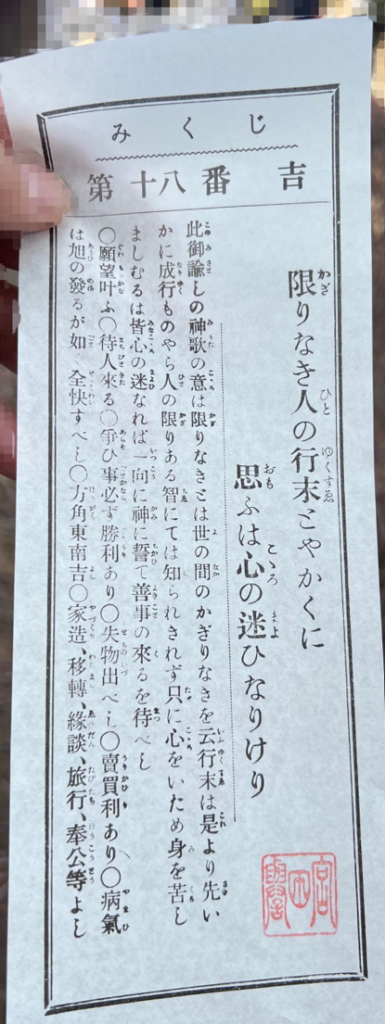 みくじ
第十八番 吉
限りなき人の行末とやかくに
思ふは心の迷ひなりけり
此御諭しの神歌の意は限りなきとは世の間のかぎりなきを云行末は是より先い
かに成行ものやら人の限りある智にては知られされず只に心をいため身を苦し
ましむるは皆心の迷なれば一向に神に誓て善事の來るを待べし
〇願望叶ふ〇待人來る〇爭ひ事必ず勝利あり〇失物出べし〇賣買利あり〇病氣
は旭の發るが如く全快すべし〇方角東南吉〇家造、移轉、緣談、旅行、奉公等よし